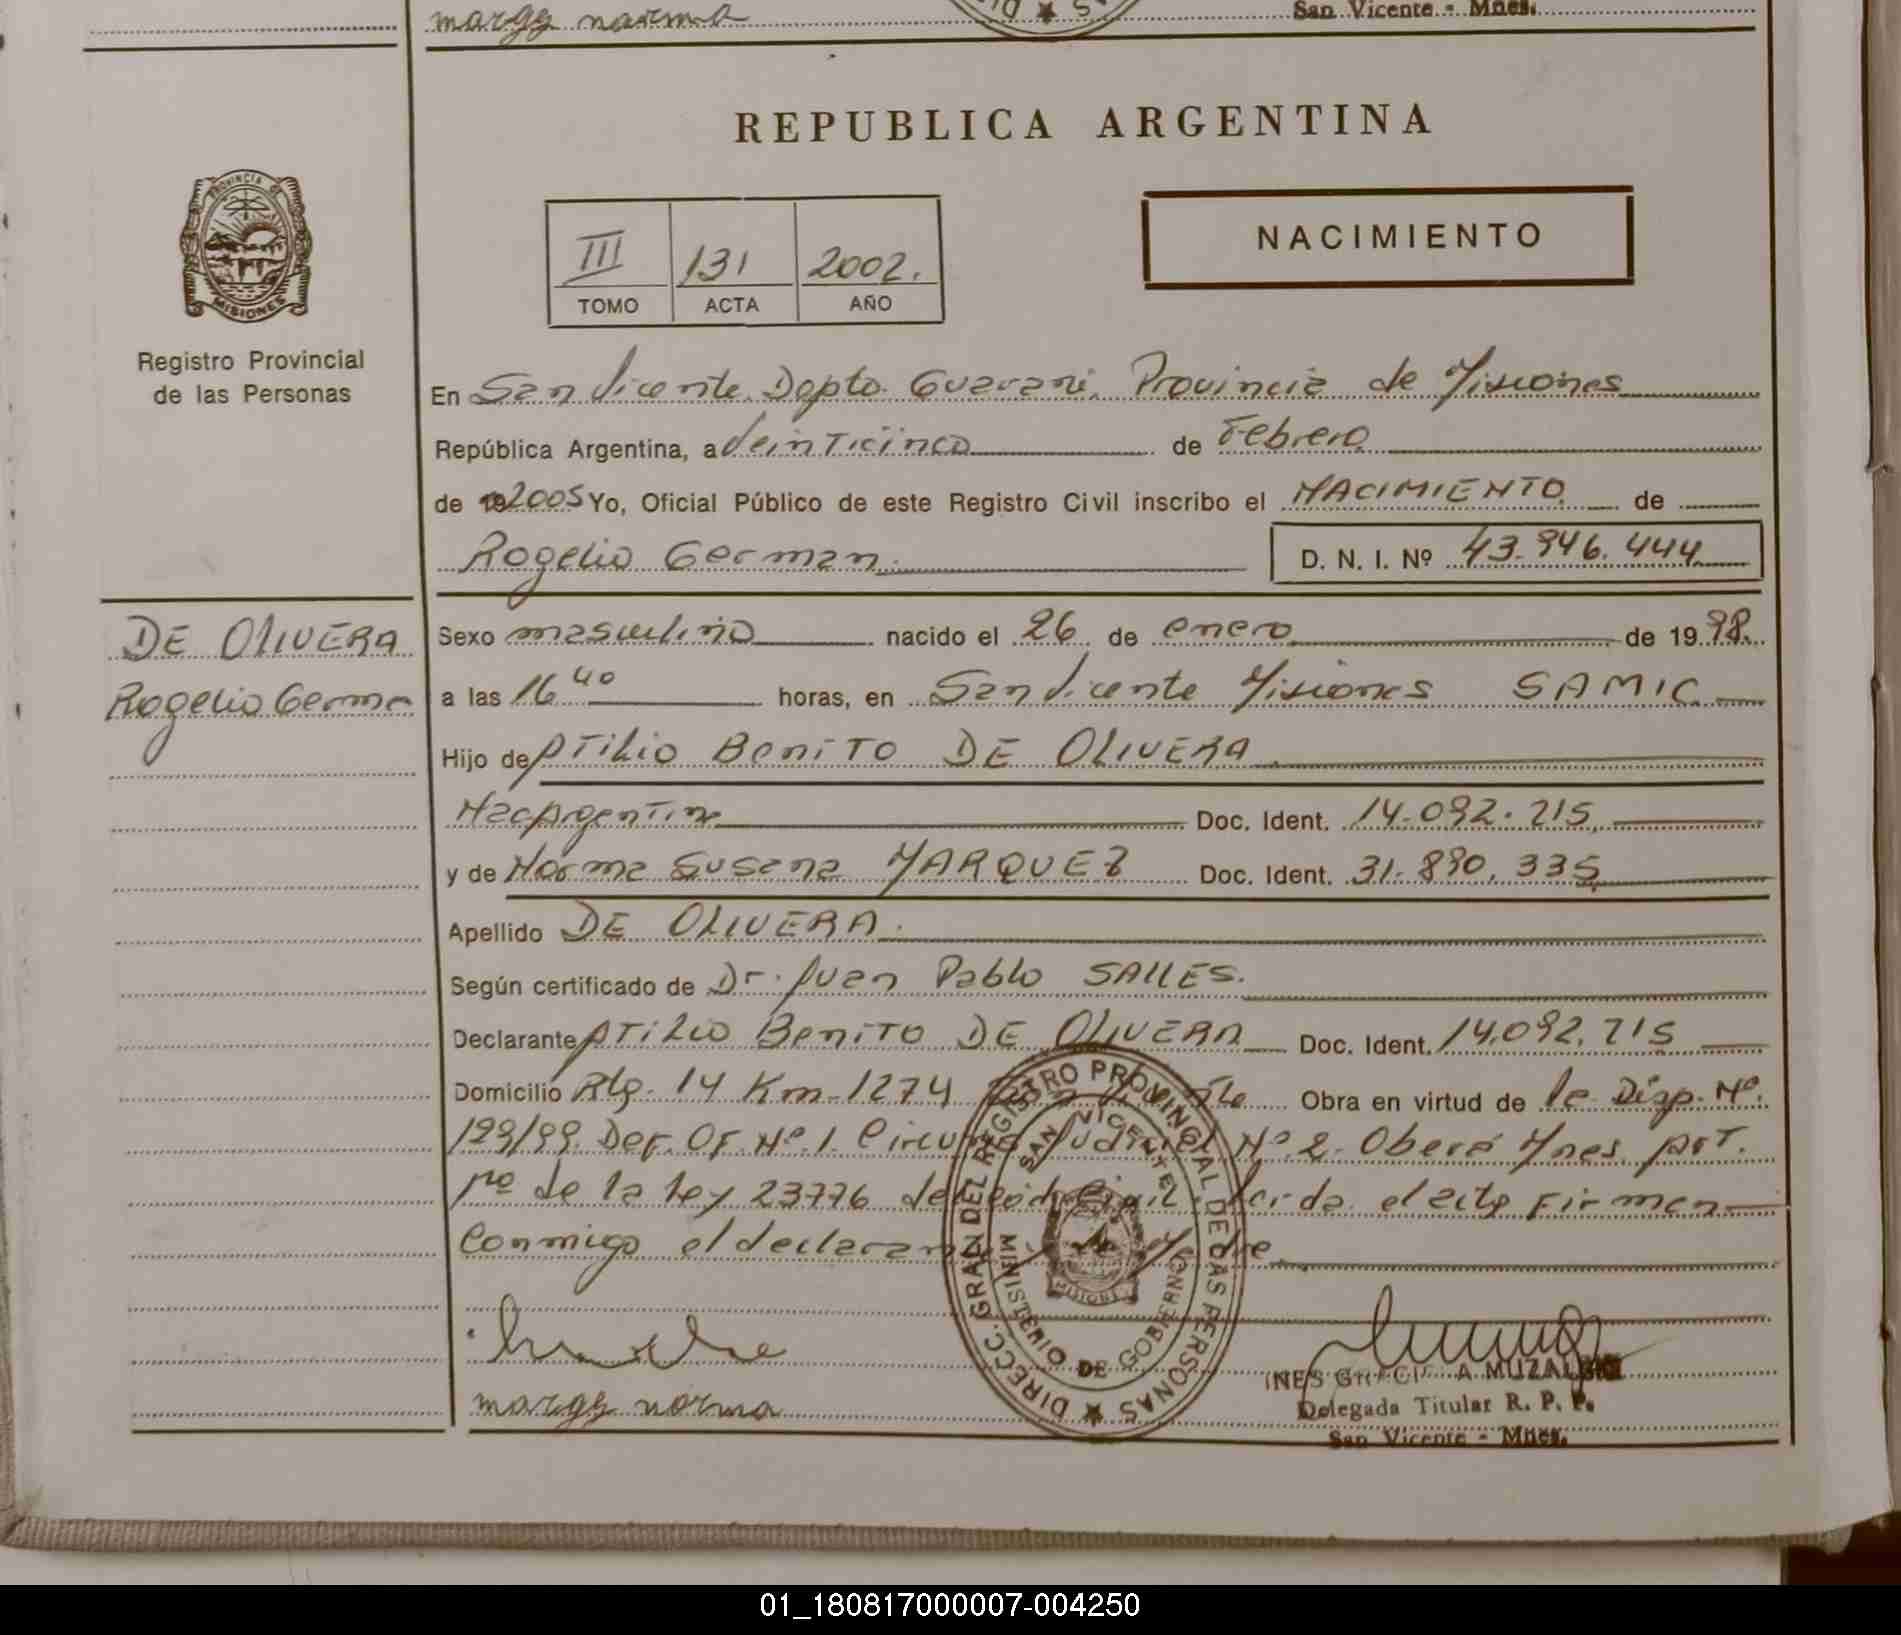 margz norma
San Vicente - Mnes.
REPUBLICA ARGENTINA
PROVINCIA DE
MISIONES
Registro Provincial
de las Personas
III 131 2002.
TOMO ACTA AÑO
NACIMIENTO
En San Vicente Depto. Guarani, Provincia de Misiones
República Argentina, a Veinticinco de Febrero
de 192005 Yo, Oficial Público de este Registro Civil inscribo el NACIMIENTO de
Rogelio German D. N. I. Nº 43.946.444
DE OLIVERA
Rogelio Germa
Sexo masculino nacido el 26 de enero de 1998.
a las 16 40 horas, en San Vicente Misiones SAMIC
Hijo de Atilio Benito DE OLIVERA
Nac Argentina Doc. Ident. 14.092.715
y de Norma Susana MARQUEZ Doc. Ident. 31.890.335
Apellido DE OLIVERA
Según certificado de Dr. Juan Pablo SALLES.
Declarante Atilio Benito DE OLIVERA Doc. Ident. 14.092.715
Domicilio Rta. 14 Km 1274 San Vicente Obra en virtud de la Disp. Nº
199/99. Def. Of. Nº 1. Circuns Judicial Nº 2. Oberá Mnes Art.
1º de la Ley 23776 del Cód. Civil. Leida el acta Firman
Conmigo el declarante y Madre
margz norma
DIRECC. GRAL. DEL REGISTRO PROVINCIAL DE LAS PERSONAS
SAN VICENTE
MINISTERIO DE GOBIERNO
MISIONES
INES GRACIELA
Delegada Titular R. P. P.
San Vicente - Mnes.
01_180817000007-004250